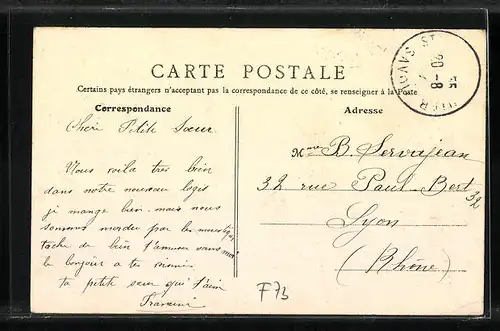 CARTE POSTALE
Certains pays étrangers n'acceptant pas la correspondance de ce côté, se renseigner à la Poste
Correspondance
Adresse
Cheri Petite Sœur
Nous voila tres bien
dans notre nouveau logis
je mange bien mais nous
sommes mordu par les
tache de bien t'amuser
le bonjour a tes
ta petite sœur qui t'aim
Mme B. Servajean
32 rue Paul-Bert 32
Lyon
(Rhône)
F73
20-8